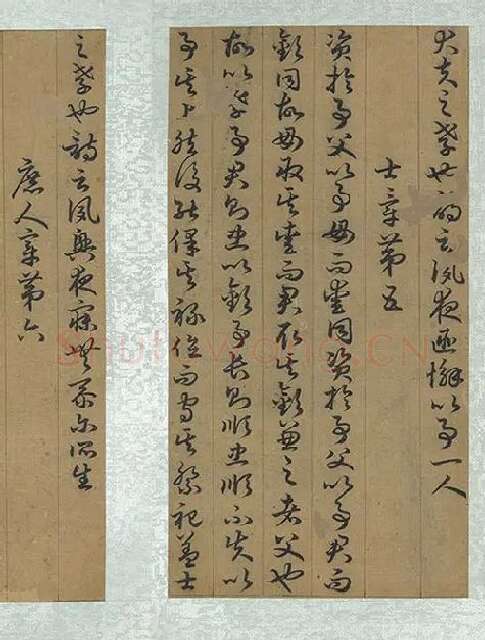 大夫之孝也詩云夙夜匪懈以事一人
士章第五
資於事父以事母而愛同資於事父以事君而
敬同故母取其愛而君取其敬兼之者父也
故以孝事君則忠以敬事長則順忠順不失以
事其上然後能保其祿位而守其祭祀蓋士
之孝也詩云夙興夜寐無忝尔所生
庶人章第六